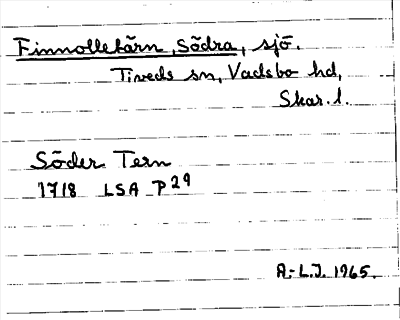 Finnolletärn, Södra, sjö.
Tiveds sn, Vadsbo hd,
Skar. l.
Söder Tern
1718 LSA P29
A.-L.J. 1965.